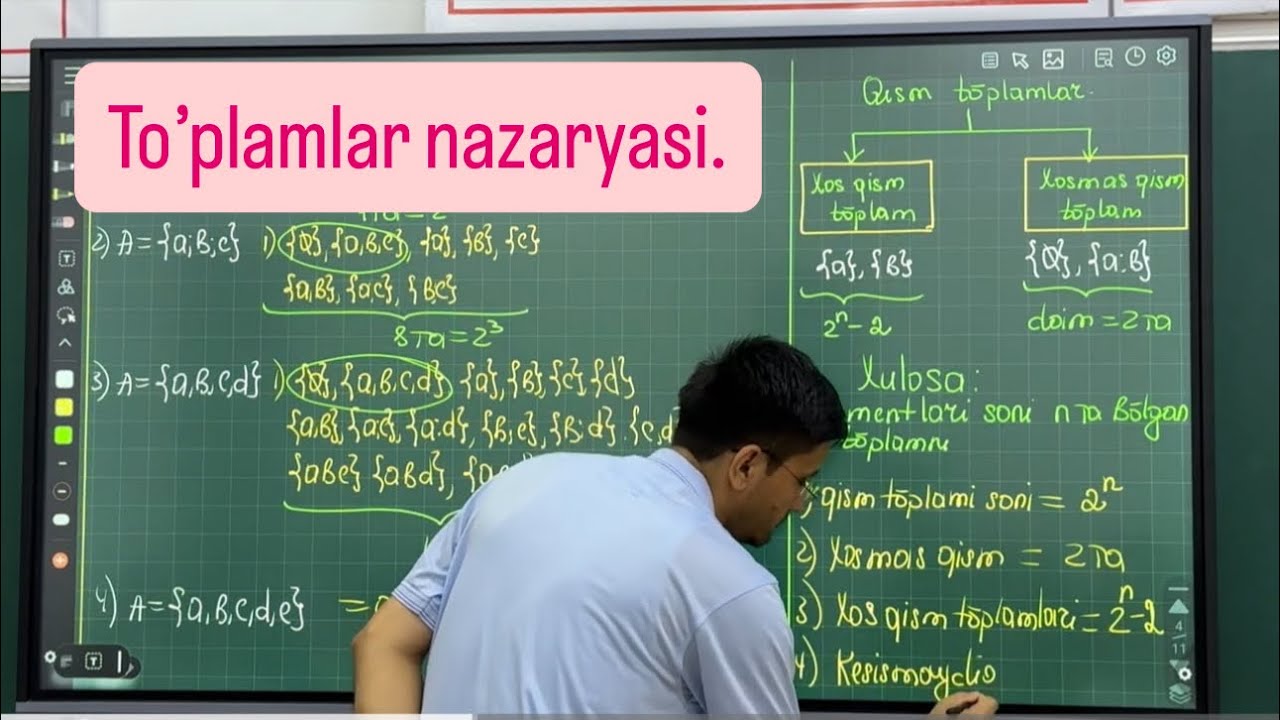 To'plamlar nazaryasi.
2) A = {a; B; c} 1) {Ø}, {a,B,c}, {a}, {B}, {c}
{a,B}, {ac}, {Bc}
8 та = 2³
3) A = {a,B,C,d} 1) {Ø}, {a,B,C,d} {a}, {B}, {c}, {d}
{a,B}, {a,c}, {a:d}, {B;c}, {B:d}. {c,d
{aBc} {aBd},
4) A = {a,B,C,d,e} =
Qism tōplamlar.
Xos qism
tōplam
Xosmas qism
tōplam
{a}, {B}
{Ø}, {a:B}
2ⁿ - 2
doim = 2 та
Xulosa:
mentlari soni n та Bōlgan
tōplamni
qism tōplami soni = 2ⁿ
2) Xosmas qism = 2 та
3) Xos qism tōplamlari = 2ⁿ-2
4) Kesismaydio
4
11